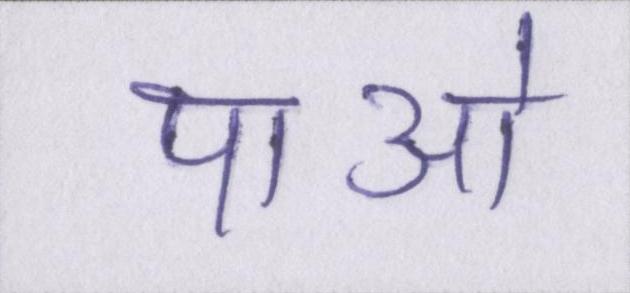 पाओ